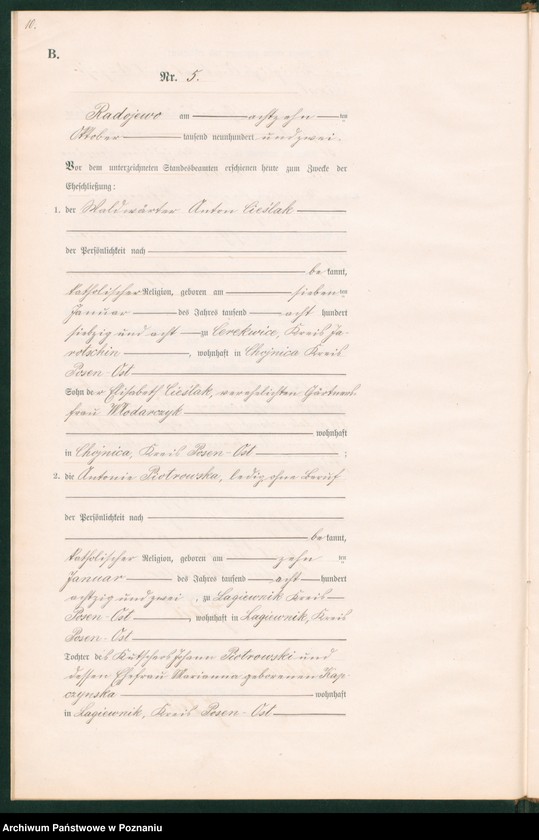 10.
B.
Nr. 5.
Radojewo am achtzehn ten
Oktober tausend neunhundert und zwei.
Vor dem unterzeichneten Standesbeamten erschienen heute zum Zwecke der
Eheschließung:
1. der Waldwärter Anton Cieślak
der Persönlichkeit nach
be kannt,
katholischer Religion, geboren am sieben ten
Januar des Jahres tausend acht hundert
siebzig und acht zu Cerekwice, Kreis Ja-
rotschin, wohnhaft in Chojnica Kreis
Posen-Ost
Sohn der Elisabeth Cieślak, verehelichten Gärtners-
frau Włodarczyk
wohnhaft
in Chojnica, Kreis Posen-Ost ;
2. die Antonie Piotrowska, ledig ohne Beruf
der Persönlichkeit nach
be kannt,
katholischer Religion, geboren am zehn ten
Januar des Jahres tausend acht hundert
achtzig und zwei, zu Lagiewnik Kreis
Posen-Ost, wohnhaft in Lagiewnik, Kreis
Posen-Ost
Tochter des Kutschers Johann Piotrowski und
dessen Ehefrau Marianna geborenen Kap-
czynska wohnhaft
in Lagiewnik, Kreis Posen-Ost
Archiwum Państwowe w Poznaniu